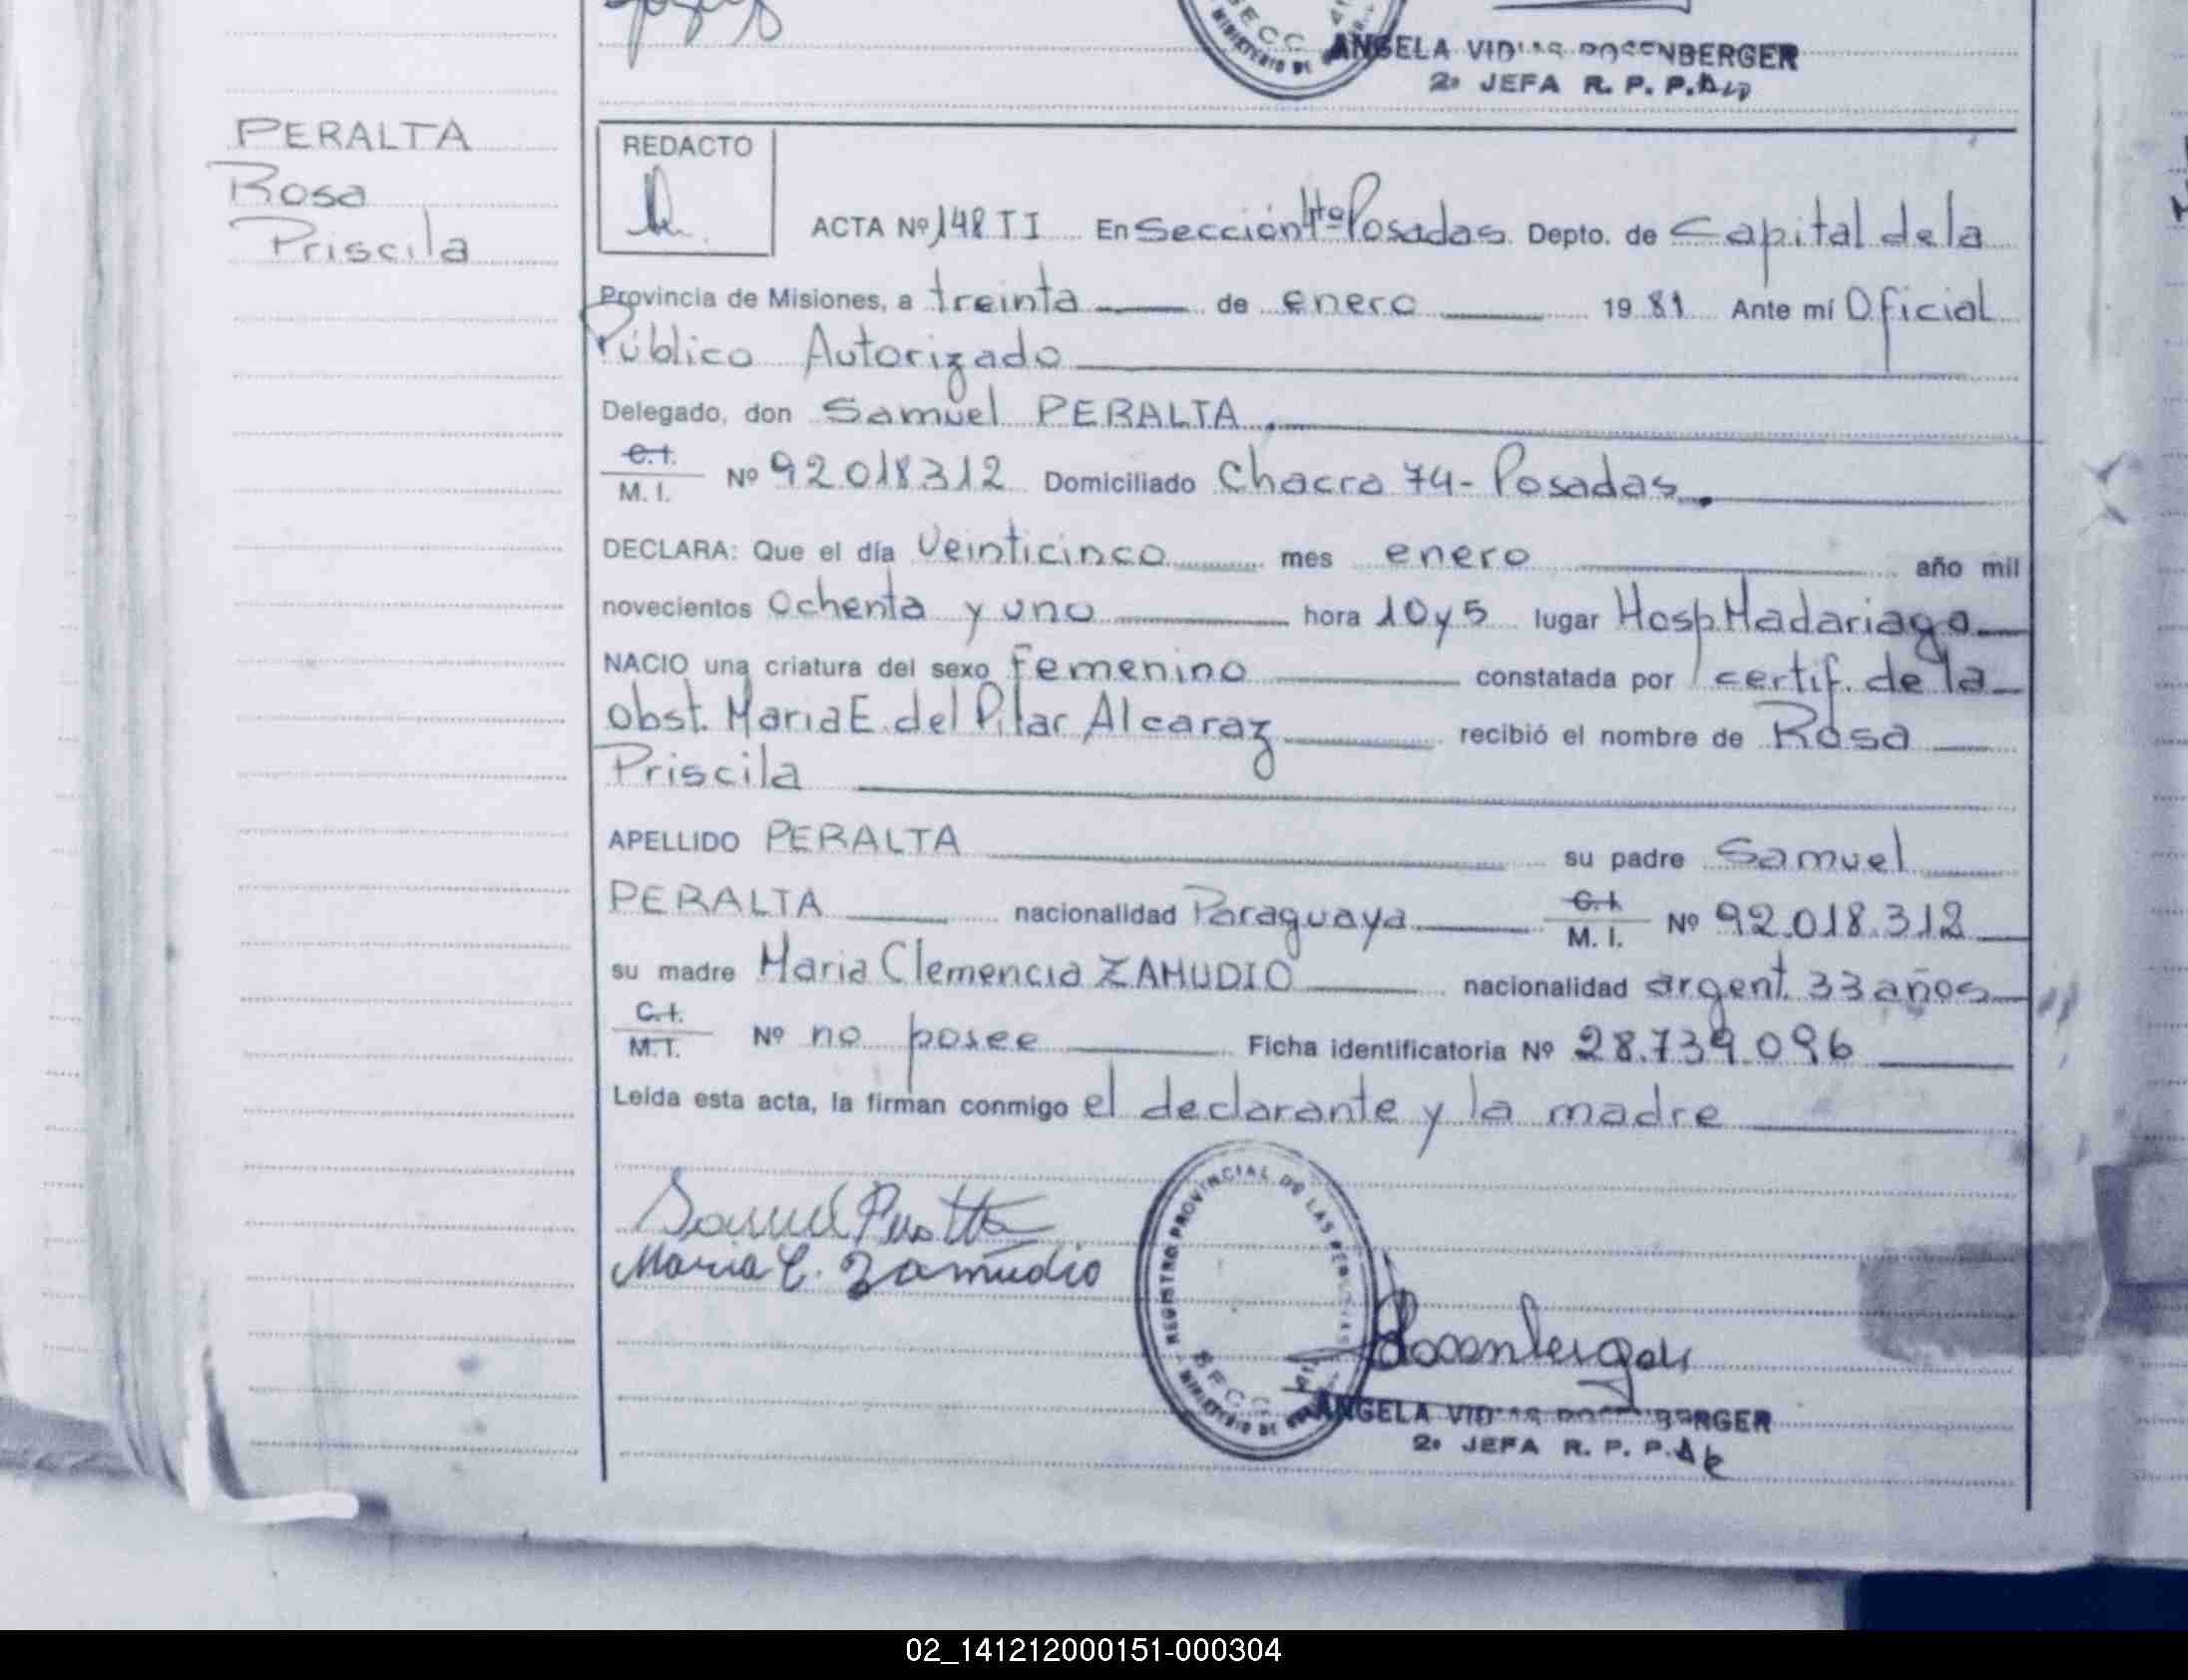 ANGELA VIDAS ROSENBERGER
2a JEFA R. P. P.
PERALTA
Rosa
Priscila
REDACTO
ACTA Nº 148 T I En Sección 4ta Posadas Depto. de Capital de la
Provincia de Misiones, a treinta de enero 1981 Ante mí Oficial
Público Autorizado
Delegado, don Samuel PERALTA,
C.I. M.I. Nº 92.018.312 Domiciliado Chacra 74 - Posadas.
DECLARA: Que el día Veinticinco mes enero año mil
novecientos Ochenta y uno hora 10 y 5 lugar Hosp. Madariaga
NACIO una criatura del sexo Femenino constatada por certif. de la
obst. Maria E. del Pilar Alcaraz recibió el nombre de Rosa
Priscila
APELLIDO PERALTA su padre Samuel
PERALTA nacionalidad Paraguaya C.I. M.I. Nº 92.018.312
su madre Maria Clemencia ZAMUDIO nacionalidad argent. 33 años
C.I. M.I. Nº no posee Ficha identificatoria Nº 28.739.096
Leída esta acta, la firman conmigo el declarante y la madre
Samuel Peralta
Maria C. Zamudio
REGISTRO PROVINCIAL DE LAS PERSONAS
MINISTERIO DE
Rosenberger
ANGELA VIDAS ROSENBERGER
2a JEFA R. P. P.
02_141212000151-000304